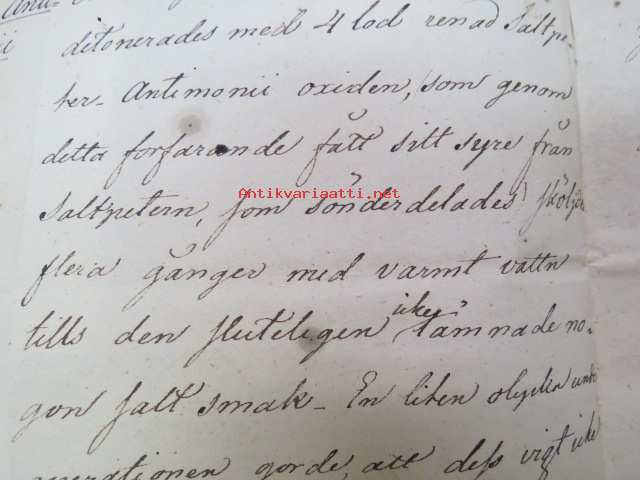 ditonerades med 4 lod renad Saltpe-
ter. Antimonii oxiden, som genom
detta forfarande fått sitt syre från
Antikvariaatti.net
Saltpetern, som sönderdelades sköljdes
flera gånger med varmt vattn
tills den sluteligen icke lämnade no-
gon salt smak - En liten olycka under
operationen gorde, att dess vigt icke